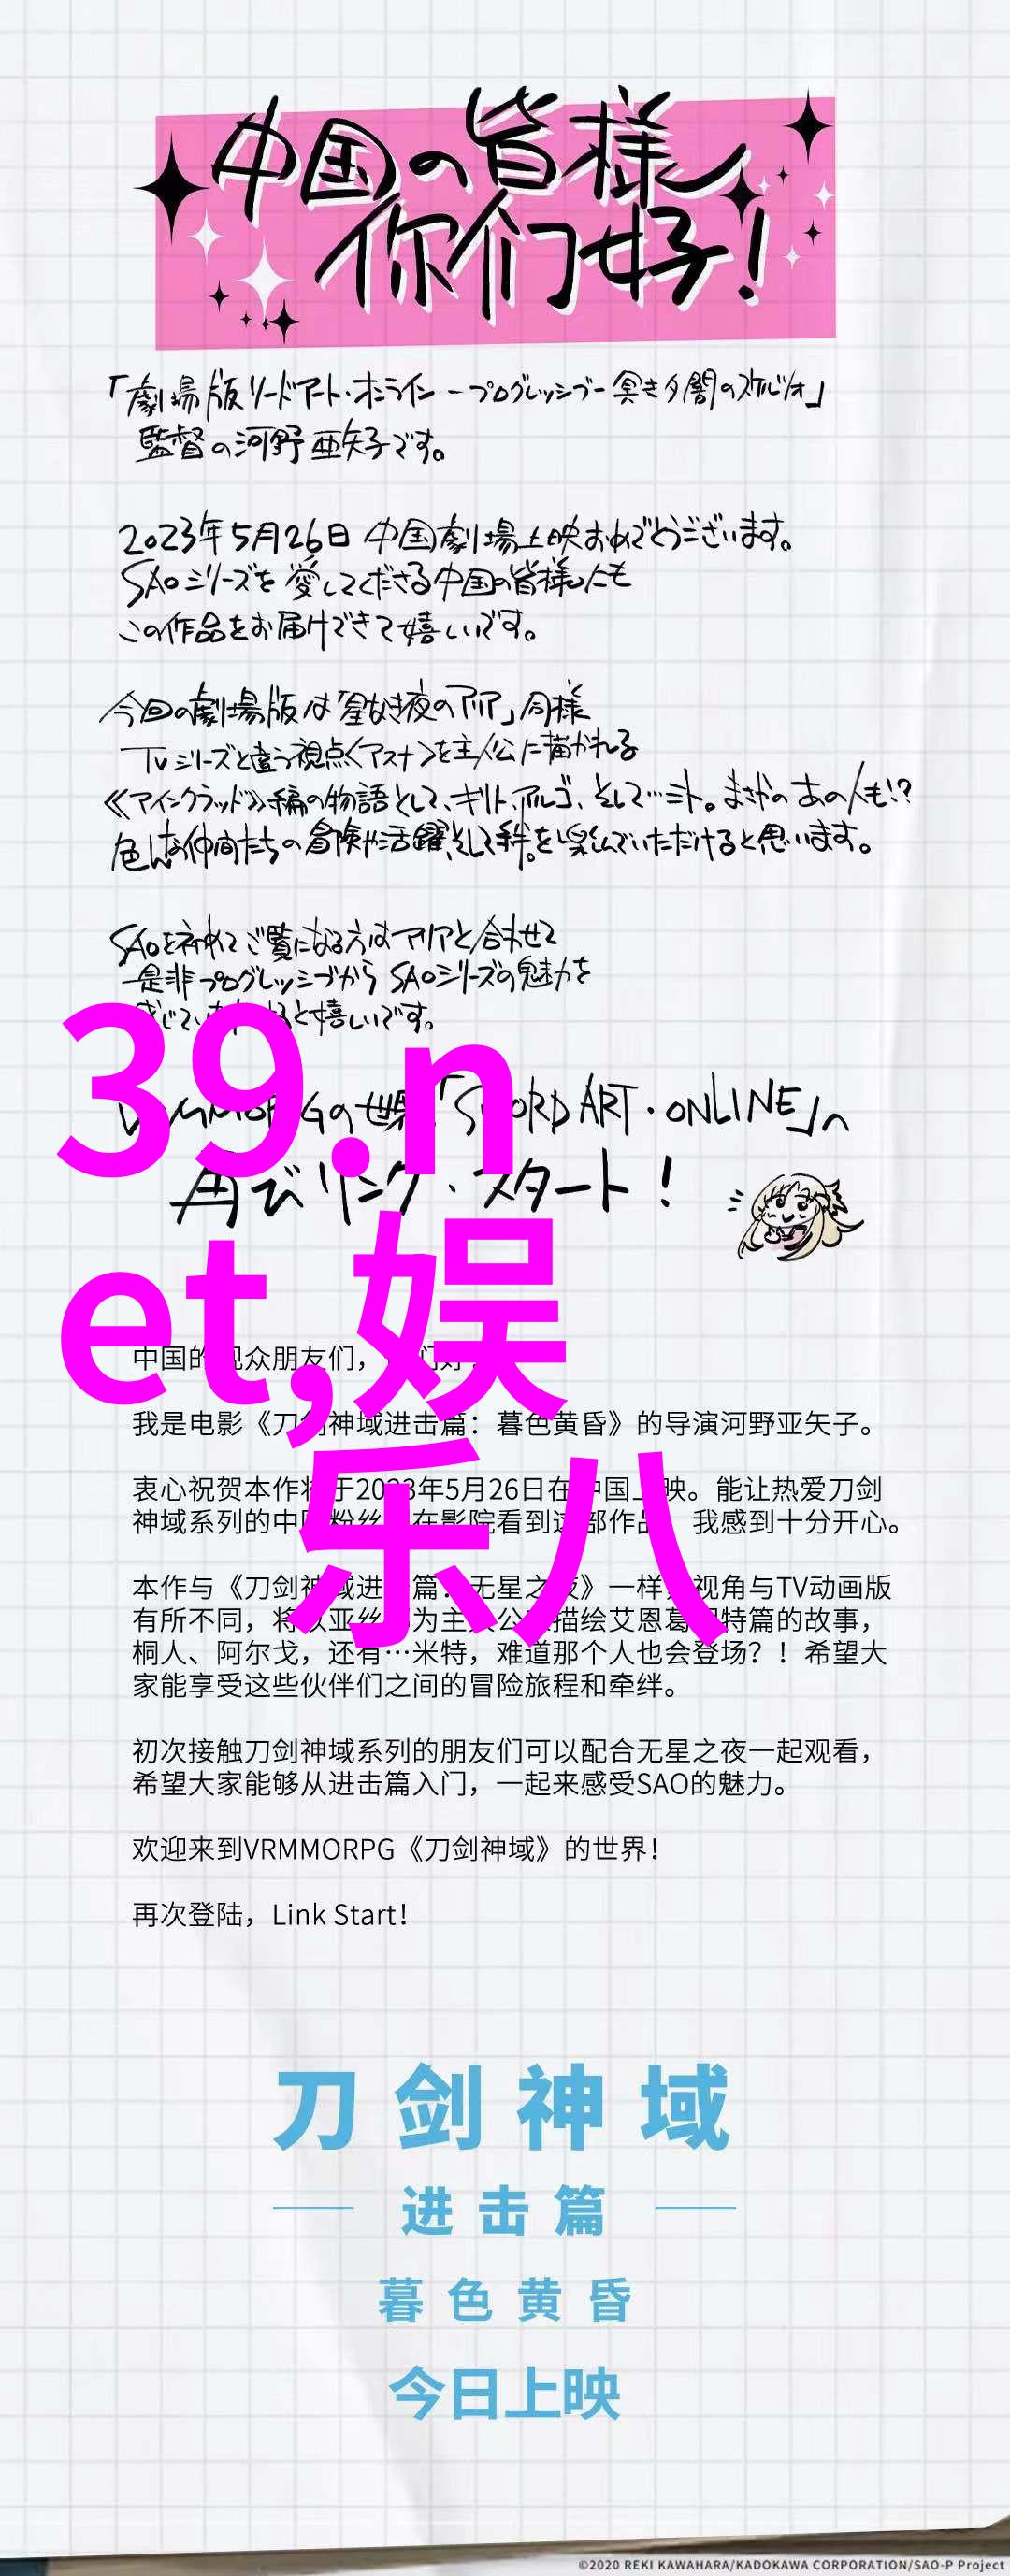 中国の皆様
你们好！
「劇場版ソードアート・オンライン －プログレッシブ－ 冥き夕闇のスケルツォ」
監督の河野亜矢子です。
2023年5月26日 中国劇場上映おめでとうございます。
SAOシリーズを愛してくださる中国の皆様にも
この作品をお届けできて嬉しいです。
今回の劇場版は「星なき夜のアリア」同様
TVシリーズと違う視点〈アスナ〉を主人公に描かれる
《アインクラッド》編の物語として、キリト、アルゴ、そして…ミト。まさかのあの人も!?
色んな仲間たちの冒険や活躍、そして絆。を楽しんでいただけると思います。
SAOを初めてご覧になる方はアリアと合わせて
是非プログレッシブから SAOシリーズの魅力を
感じて と嬉しいです。
VRMMORPGの世界「SWORD ART・ONLINE」へ
再びリンク・スタート！
39.n
et,娱
乐八
中国的观众朋友们，你们好！
我是电影《刀剑神域进击篇：暮色黄昏》的导演河野亚矢子。
衷心祝贺本作将于2023年5月26日在中国上映。能让热爱刀剑
神域系列的中国粉丝 在影院看到这部作品 我感到十分开心。
本作与《刀剑神域进击篇：无星之夜》一样， 视角与TV动画版
有所不同，将以亚丝娜为主人公 描绘艾恩葛朗特篇的故事，
桐人、阿尔戈，还有…米特，难道那个人也会登场？！希望大
家能享受这些伙伴们之间的冒险旅程和牵绊。
初次接触刀剑神域系列的朋友们可以配合无星之夜一起观看，
希望大家能够从进击篇入门，一起来感受SAO的魅力。
欢迎来到VRMMORPG《刀剑神域》的世界！
再次登陆，Link Start！
刀剑神域
进击篇
暮色黄昏
今日上映
©2020 REKI KAWAHARA/KADOKAWA CORPORATION/SAO-P Project